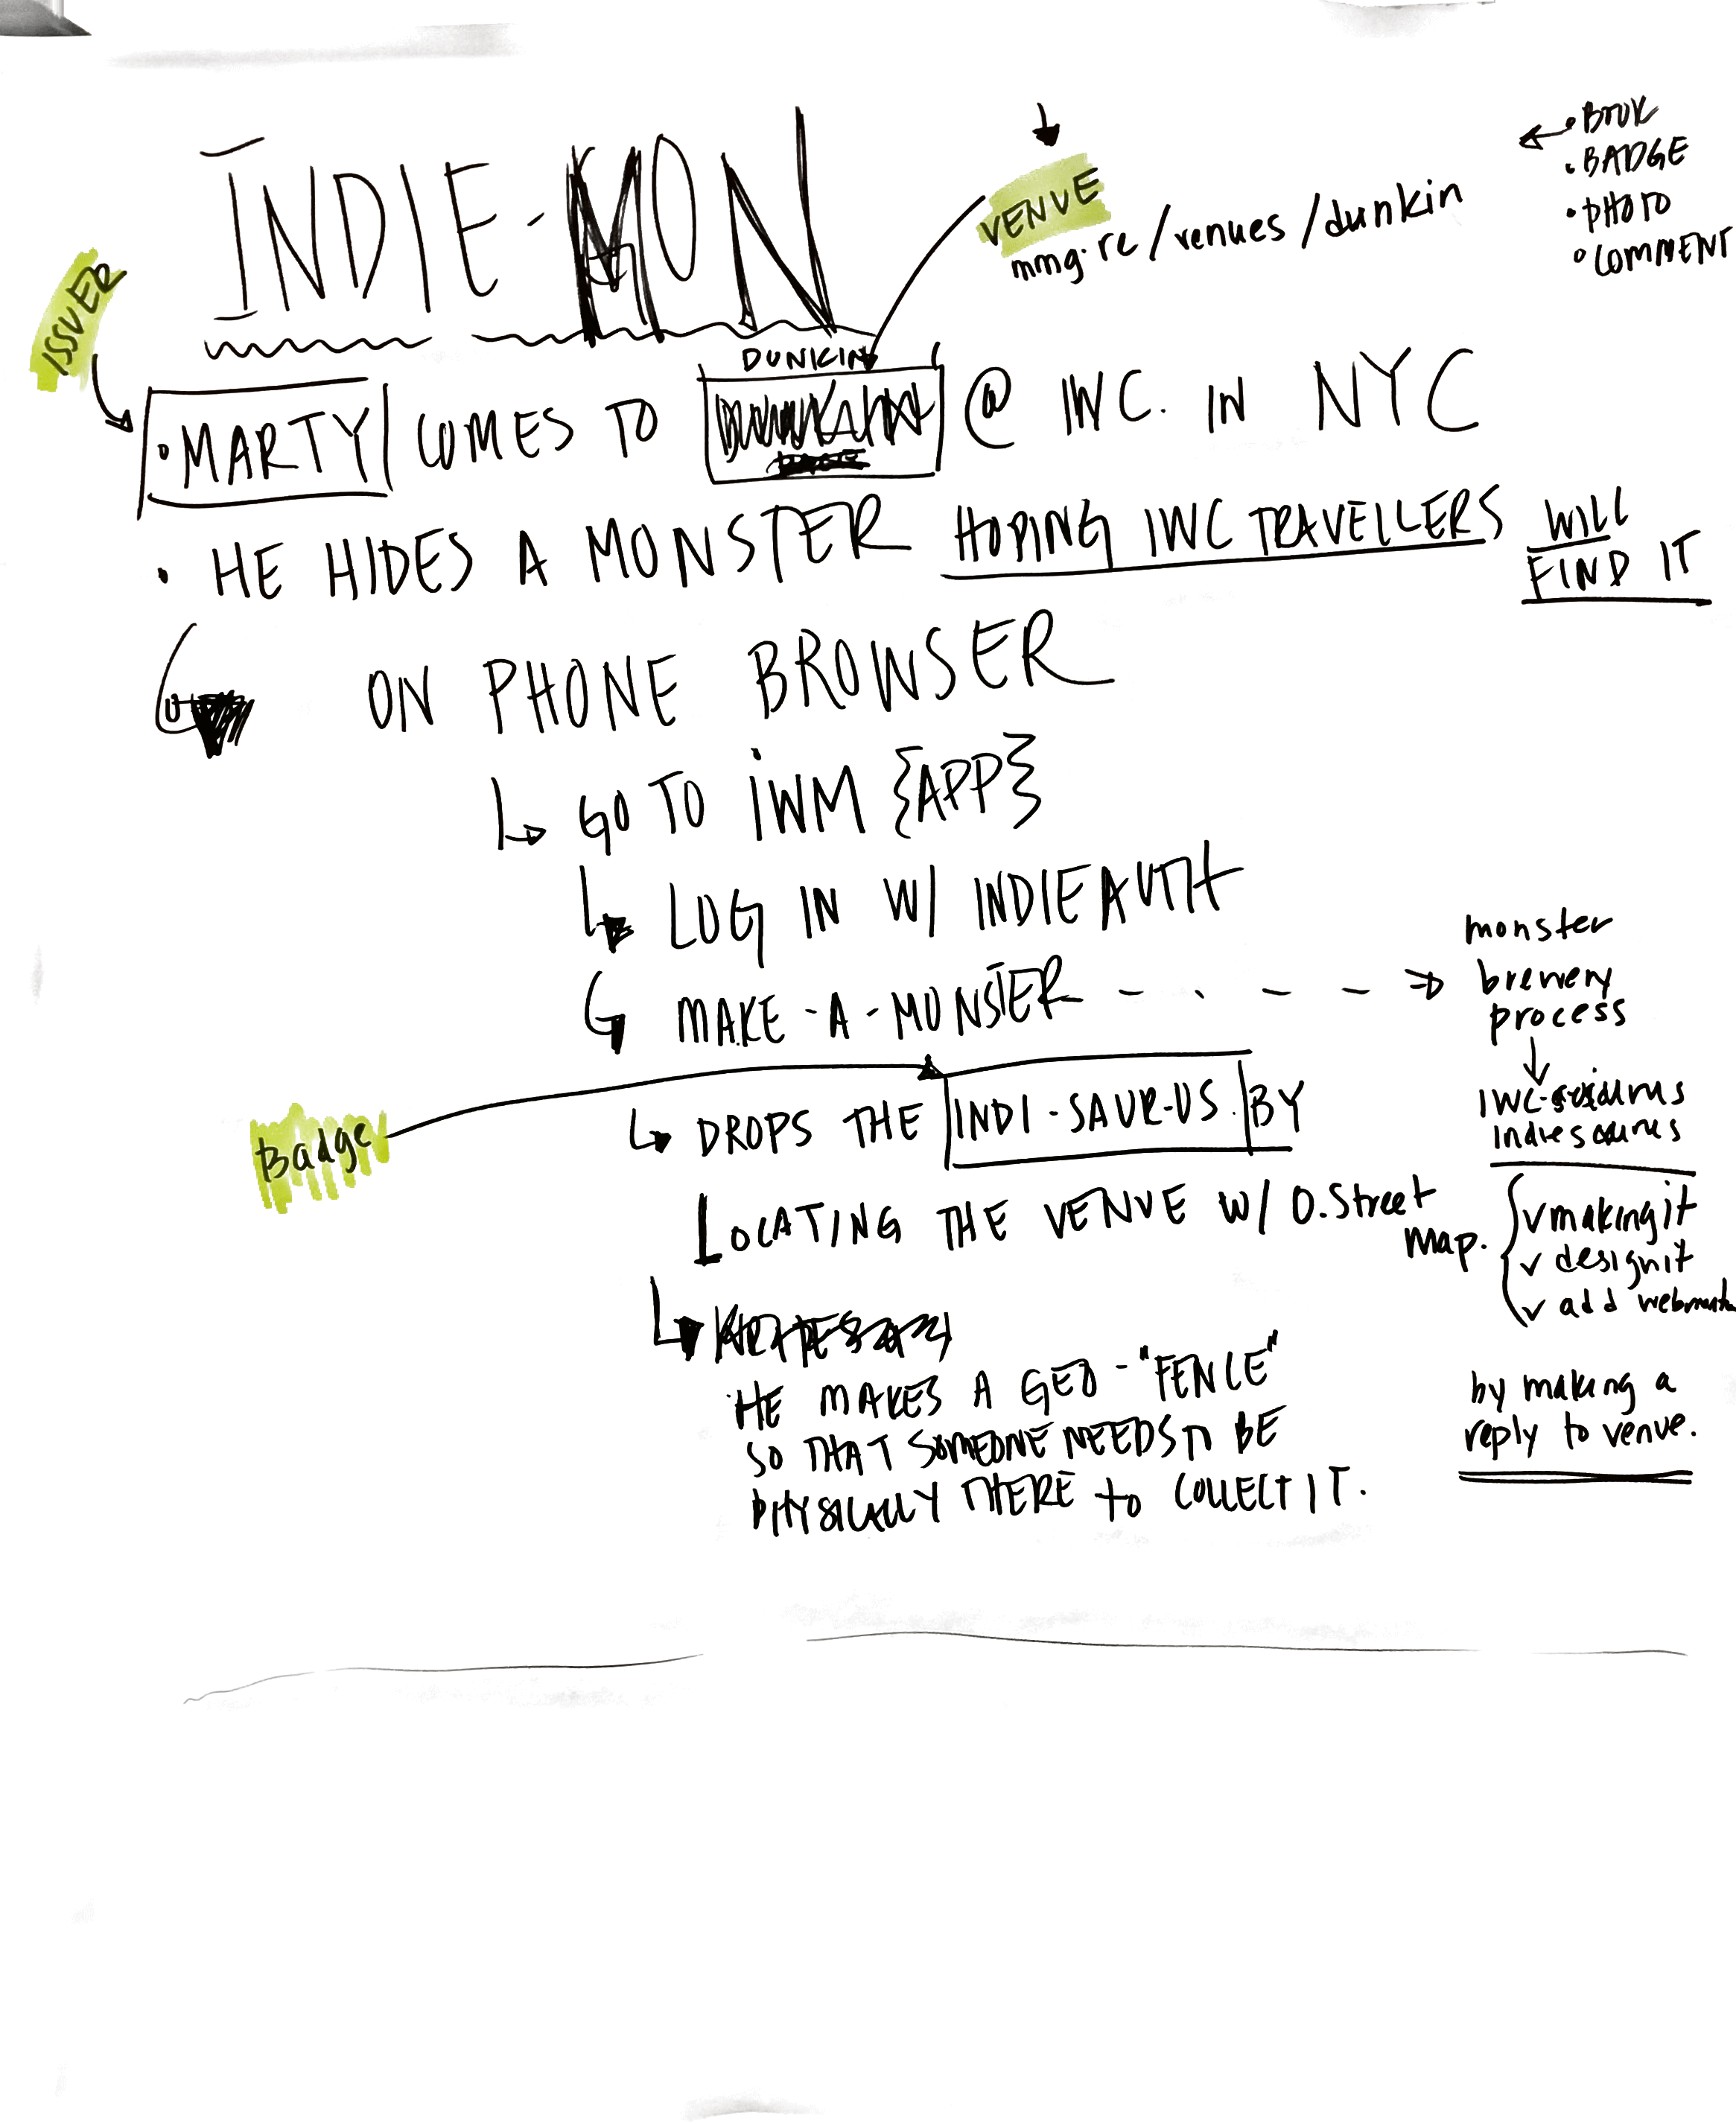 INDIE-MON
VENUE
mmg.re/venues/dunkin
• BOOK
• BADGE
• PHOTO
• COMMENT
ISSUER
DUNKIN
• MARTY COMES TO @ IWC. IN NYC
• HE HIDES A MONSTER HOPING IWC TRAVELLERS WILL
FIND IT
ON PHONE BROWSER
GO TO IWM {APP}
LOG IN W/ INDIEAUTH
MAKE-A-MONSTER
monster
brewery
process
IWC-
indiesaurus
Badge
DROPS THE INDI-SAUR-US. BY
LOCATING THE VENUE W/ O.Street
Map.
✓ making it
✓ design it
✓ add
HE MAKES A GEO-"FENCE"
SO THAT SOMEONE NEEDS TO BE
PHYSICALLY THERE to COLLECT IT.
by making a
reply to venue.